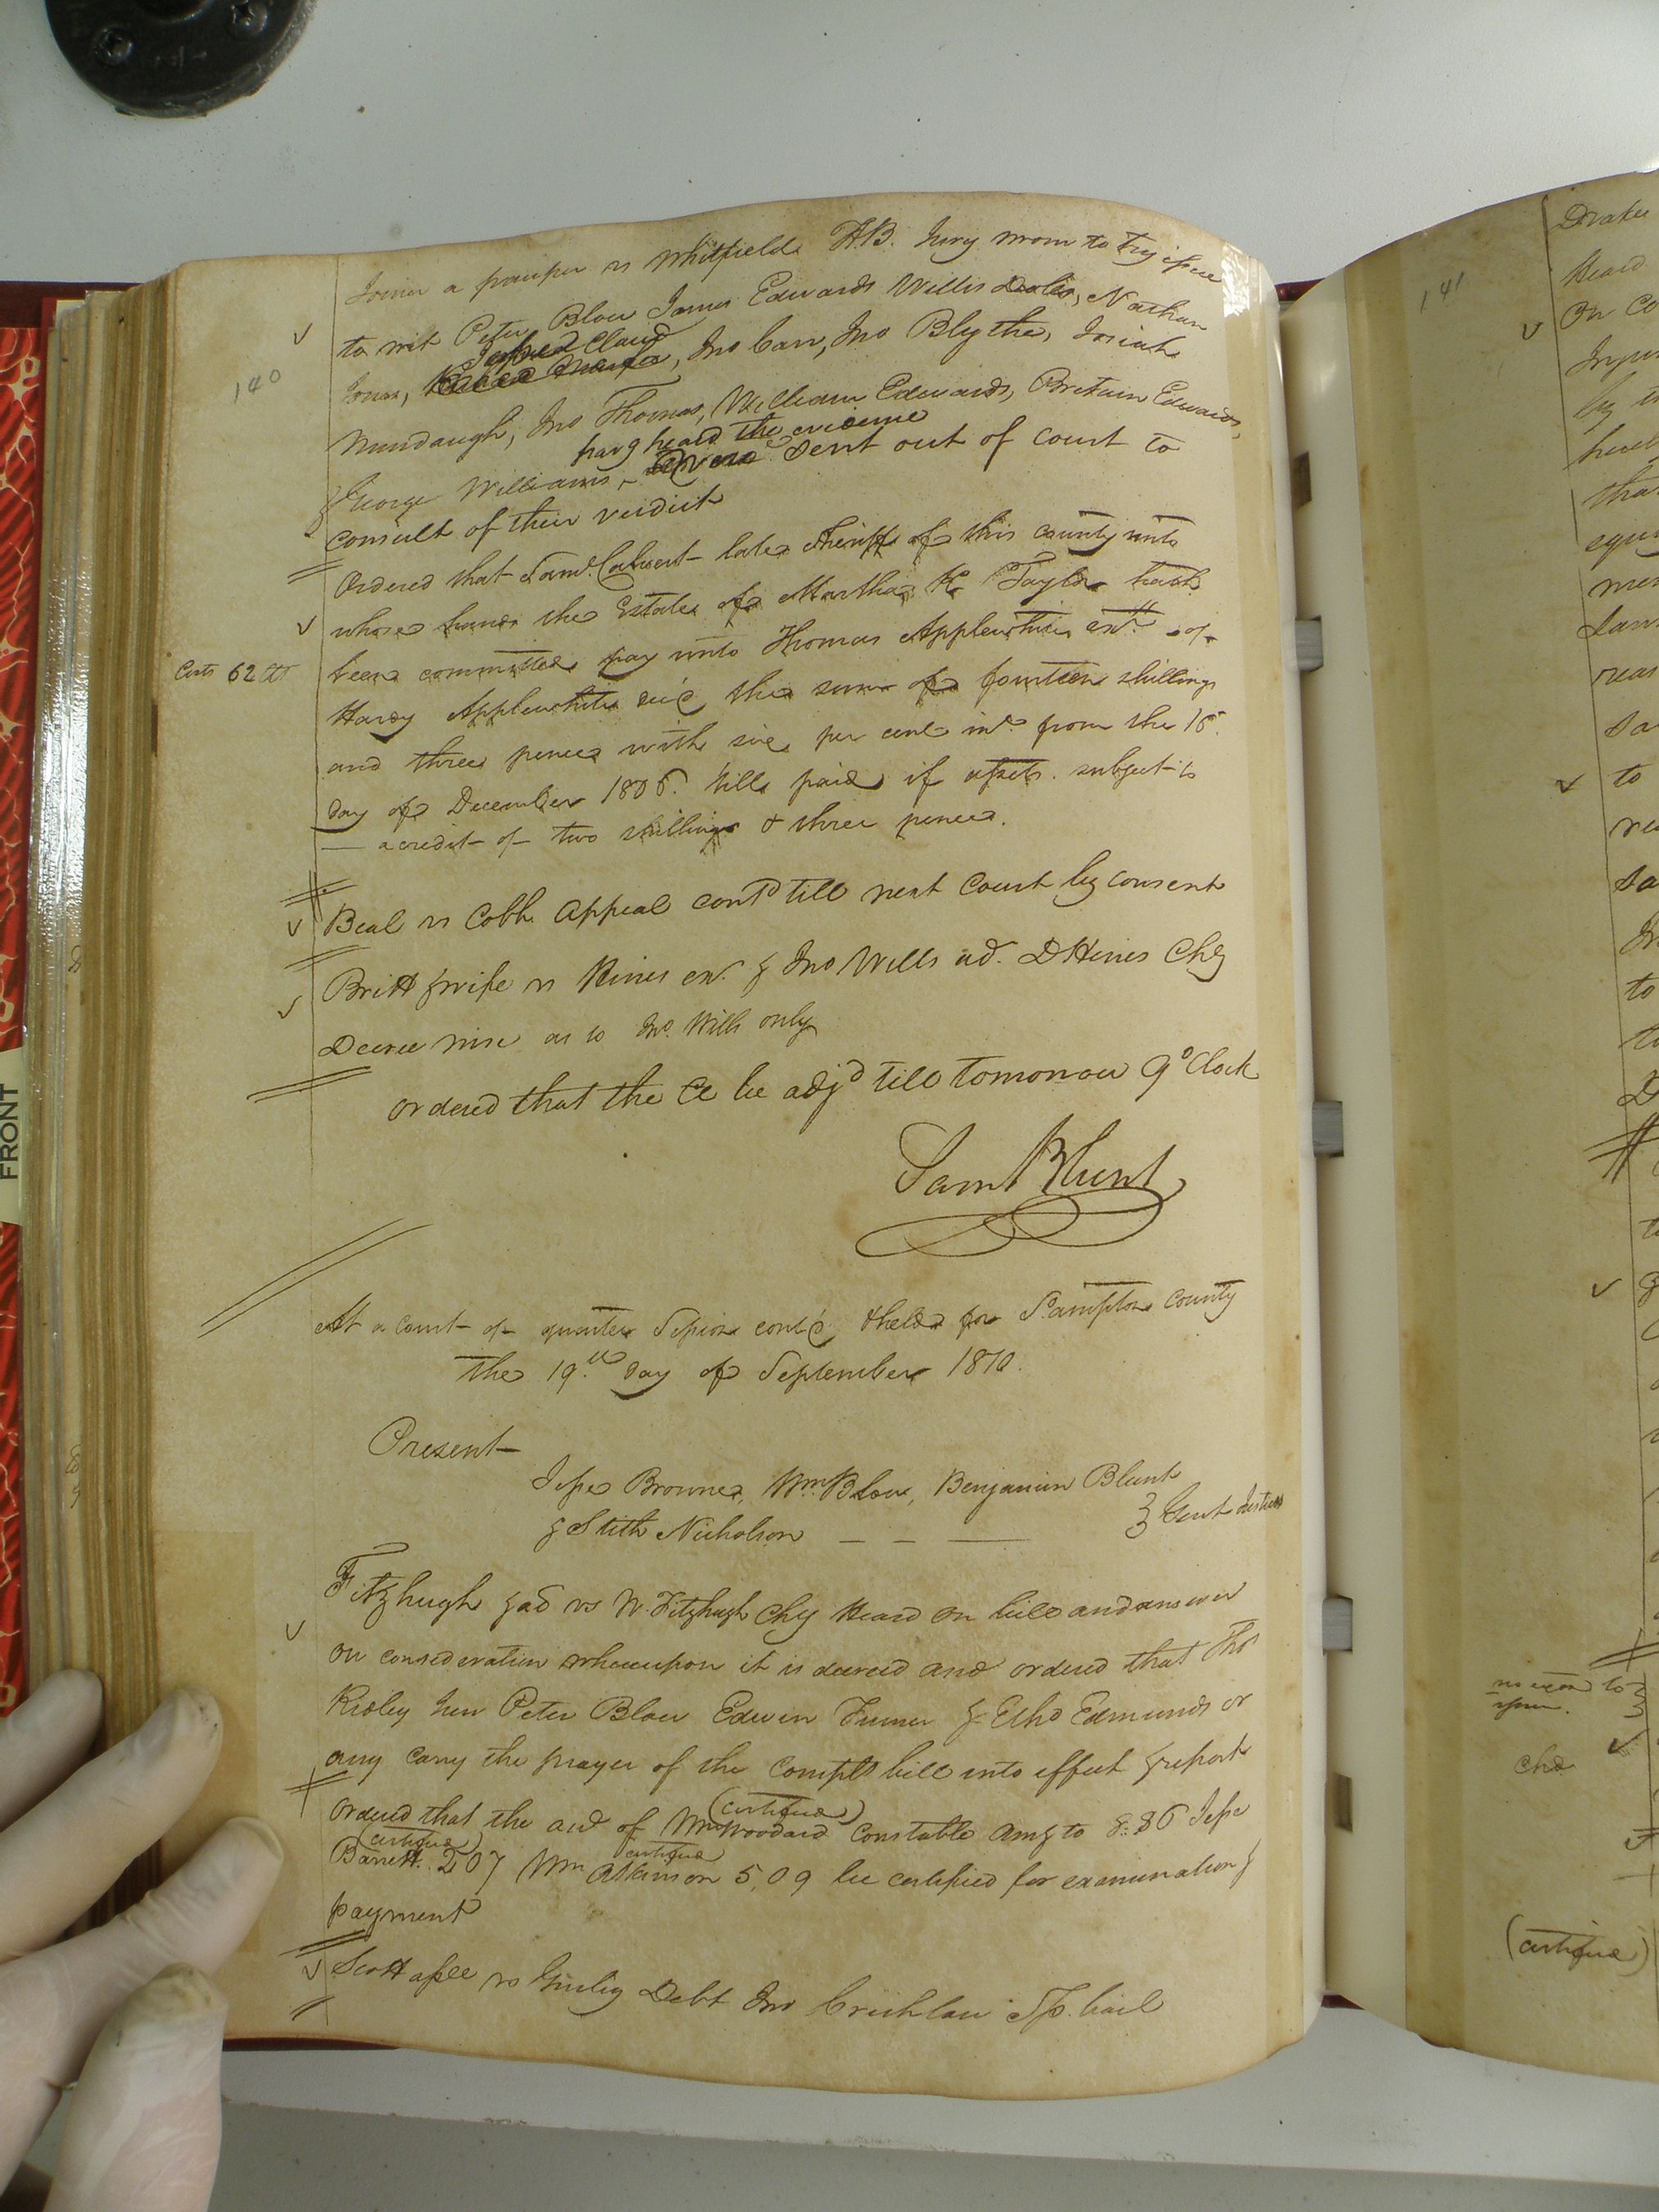 140
Joiner a pauper vs Whitfield A.B. Jury sworn to try issue
to wit Peter Blow James Edwards Willis Doles, Nathan
Jones, Claud Jno Carr, Jno Blythe, Josiah
Mundaugh, Jno Thomas, William Edwards, Britain Edwards,
havg heard the evidence
& George Williams, sent out of Court to
consult of their verdict
Ordered that Saml. Calvert late sheriff of this county unto
whose hands the Estate of Martha K Taylor hath
been committed pay unto Thomas Applewhite exr. of
Costs 62 Cts
Hardy Applewhite dec'd the sum of fourteen shillings
and three pence with six per cent int. from the 16
day of December 1806. till paid if assets. subject to
a credit of two shillings & three pence.
Beal vs Cobb Appeal contd till next Court by consent
Britt & wife vs Hines exr. & Jno Wills ad. D Hines Chy
Decree nisi as to Jno. Wills only
ordered that the Ct be adjd till tomorrow 9 oClock
Saml Blunt
At a Court of quarter Session cont'd & held for S.ampton County
the 19.th day of September 1810.
Present
Jesse Browne, Wm Blow, Benjamin Blunt
& Stith Nicholson } Gent Justices
Fitzhugh & ad vs W. Fitzhugh Chy Heard on bill and answer
on consideration whereupon it is decreed and ordered that Thos
Ridley Peter Blow Edwin Turner & Etho Edmunds or
any carry the prayer of the Complt bill into effect & report
(certified)
Ordered that the acct of Wm Woodard Constable amg to 8.86 Jesse
(certified) certified
Barrett. 207 Wm Atkinson 5,09 be certified for examination &
payment
Scott assee vs Debt Jno Crichlow Sp. bail
141
Drake
Heard
On Co
to
no
(certified)